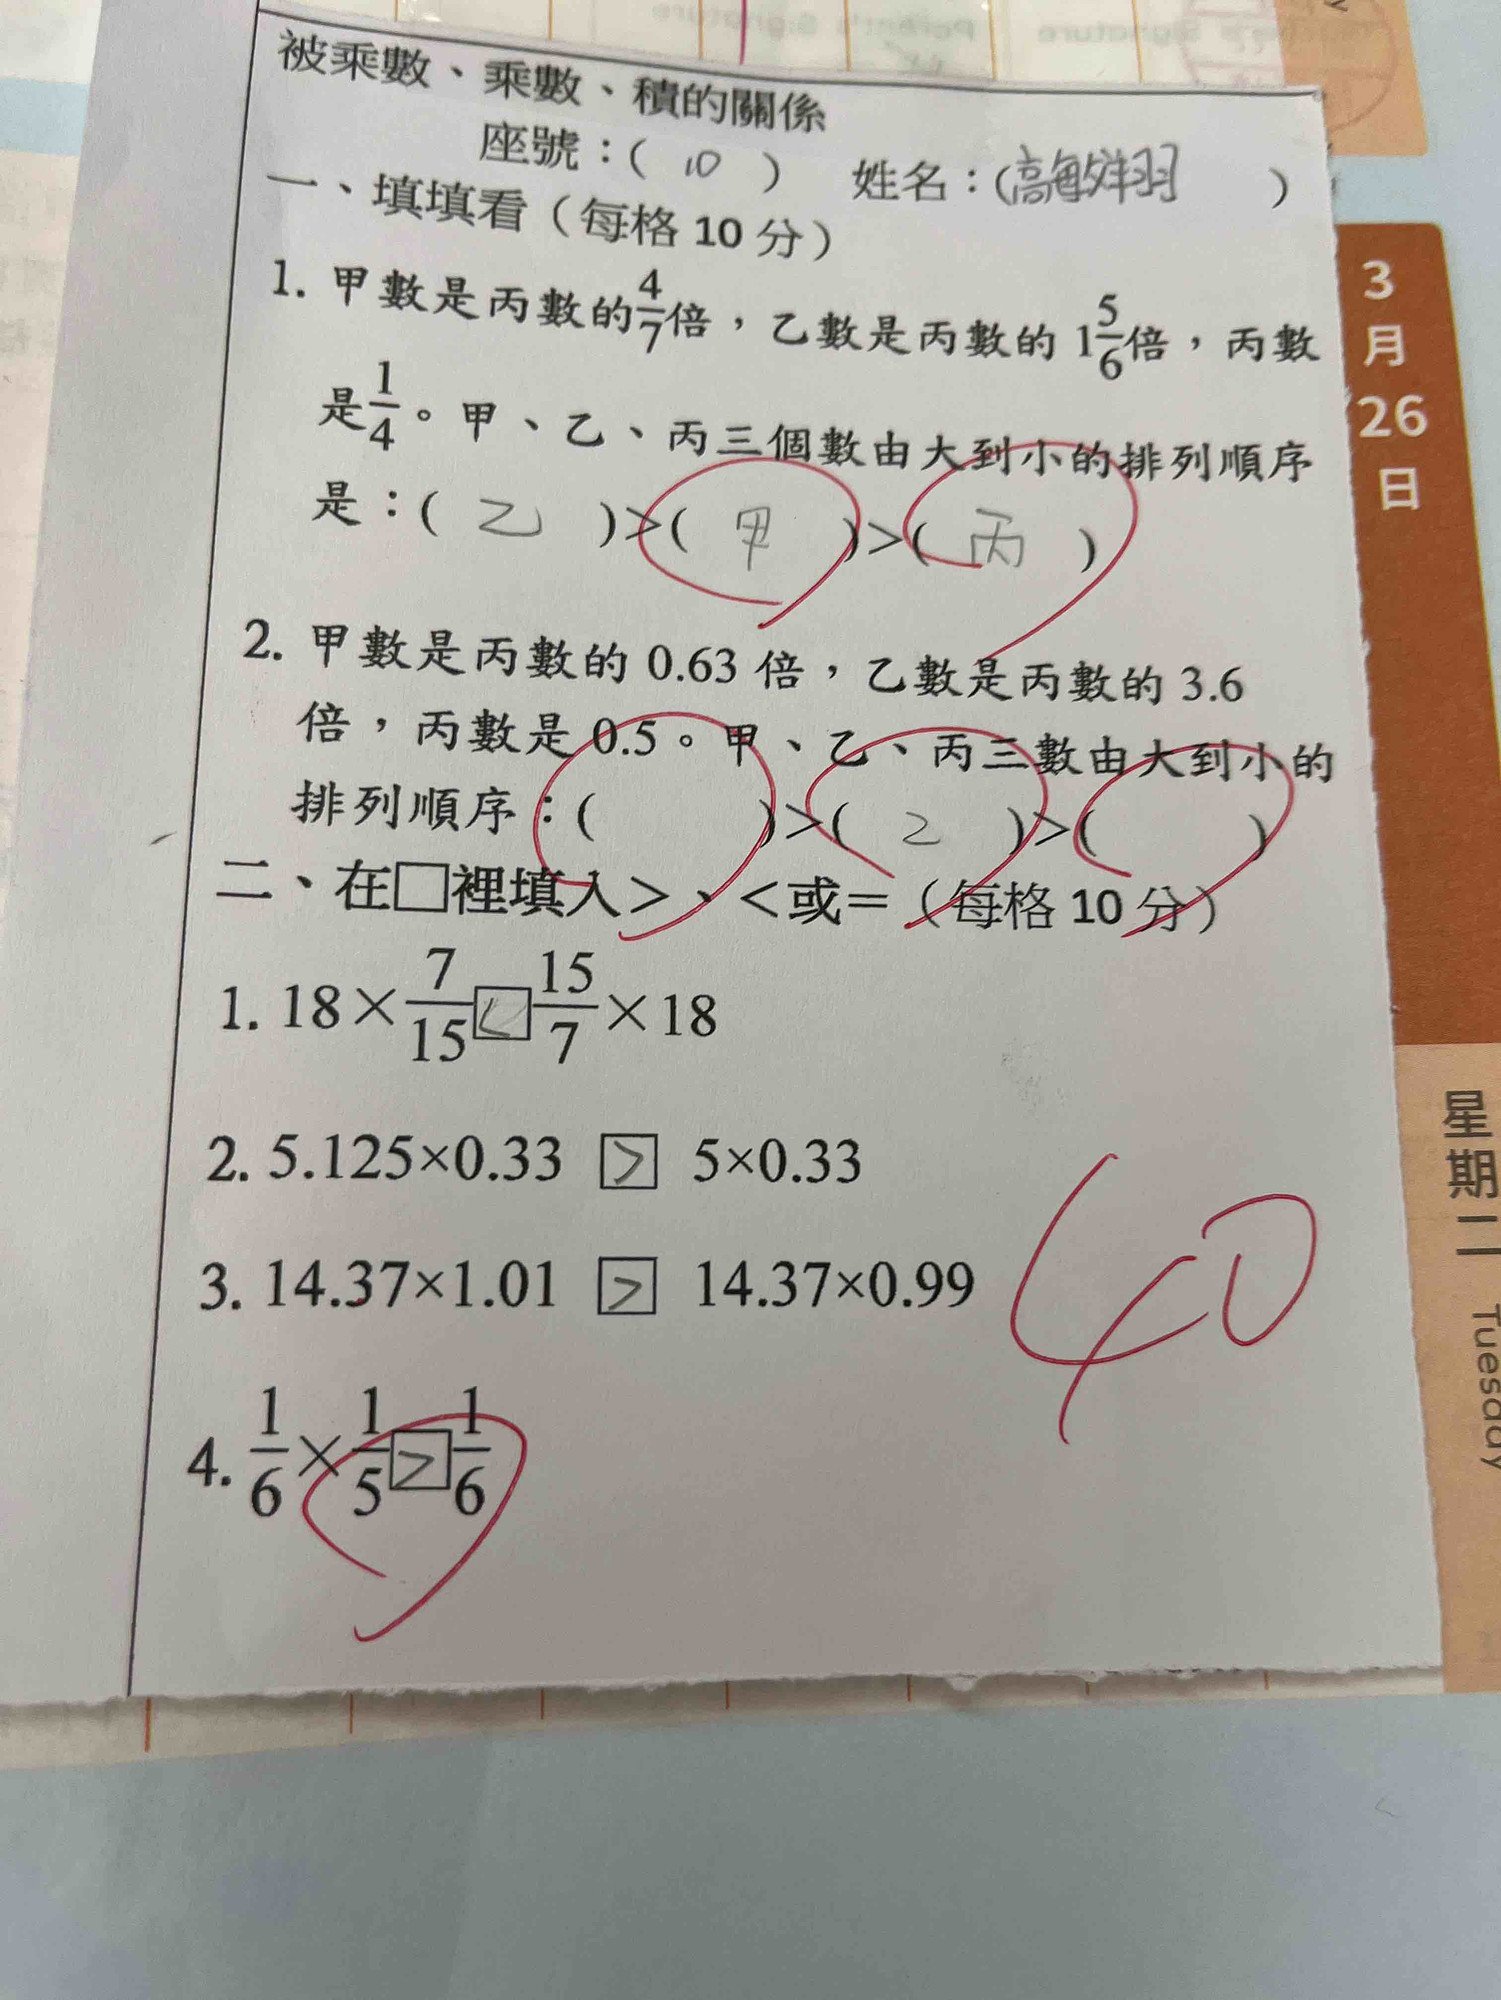 被乘數、乘數、積的關係
座號：( 10 ) 姓名：(高敏翔)
一、填填看（每格 10 分）
1. 甲數是丙數的4/7倍，乙數是丙數的 1 5/6倍，丙數
是1/4。甲、乙、丙三個數由大到小的排列順序
是：( 乙 )>( 甲 )>( 丙 )
2. 甲數是丙數的 0.63 倍，乙數是丙數的 3.6
倍，丙數是 0.5。甲、乙、丙三數由大到小的
排列順序：( )>( 2 )>( )
二、在□裡填入>、<或=（每格 10 分）
1. 18×7/15 < 15/7×18
2. 5.125×0.33 > 5×0.33
3. 14.37×1.01 > 14.37×0.99
4. 1/6×1/5 > 1/6
40
3
月
26
日
星期二 Tuesday